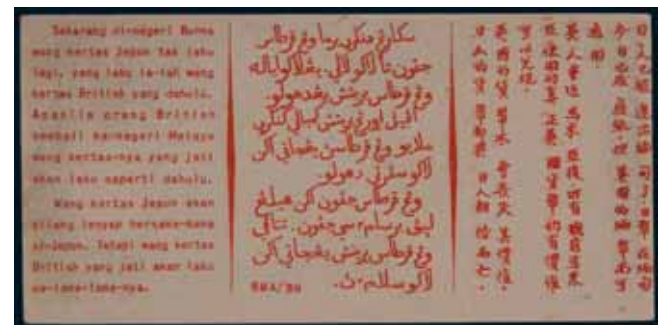 Sekarang di-negeri Burma
wang kertas Jepun tak laku
lagi, yang laku ia-lah wang
kertas British yang dahulu.
Apabila orang British
kembali ka-negeri Malaya
wang kertas-nya yang jati
akan laku seperti dahulu.
Wang kertas Jepun akan
hilang lenyap bersama-sama
si-Jepun. Tetapi wang kertas
British yang jati akan laku
se-lama-lama-nya.
سكارڠ دنڬري برما وڠ قرطاس
جڤون تا لاكو لاڬي، يڠ لاكو ياله
وڠ قرطاس برتش يڠ دهولو.
اڤبيل اورڠ برتش كمبالي كنڬري
ملايو وڠ قرطاسڽ يڠ جاتي اكن
لاكو سڤرتي دهولو.
وڠ قرطاس جڤون اكن هيلڠ
لڽڤ برسام٢ سي جڤون. تتاڤي
وڠ قرطاس برتش يڠ جاتي اكن
لاكو سلام٢ڽ.
日人已被逐出緬甸了日幣在緬甸
今日已成廢紙 英國的紙幣
通用.
英人重返馬來亞後所有戰前在馬來
亞使用的真正英國貨幣仍有價值,
可以兌現.
英國的貨幣永 其價值.
日人的貨幣却與日人相偕而亡.